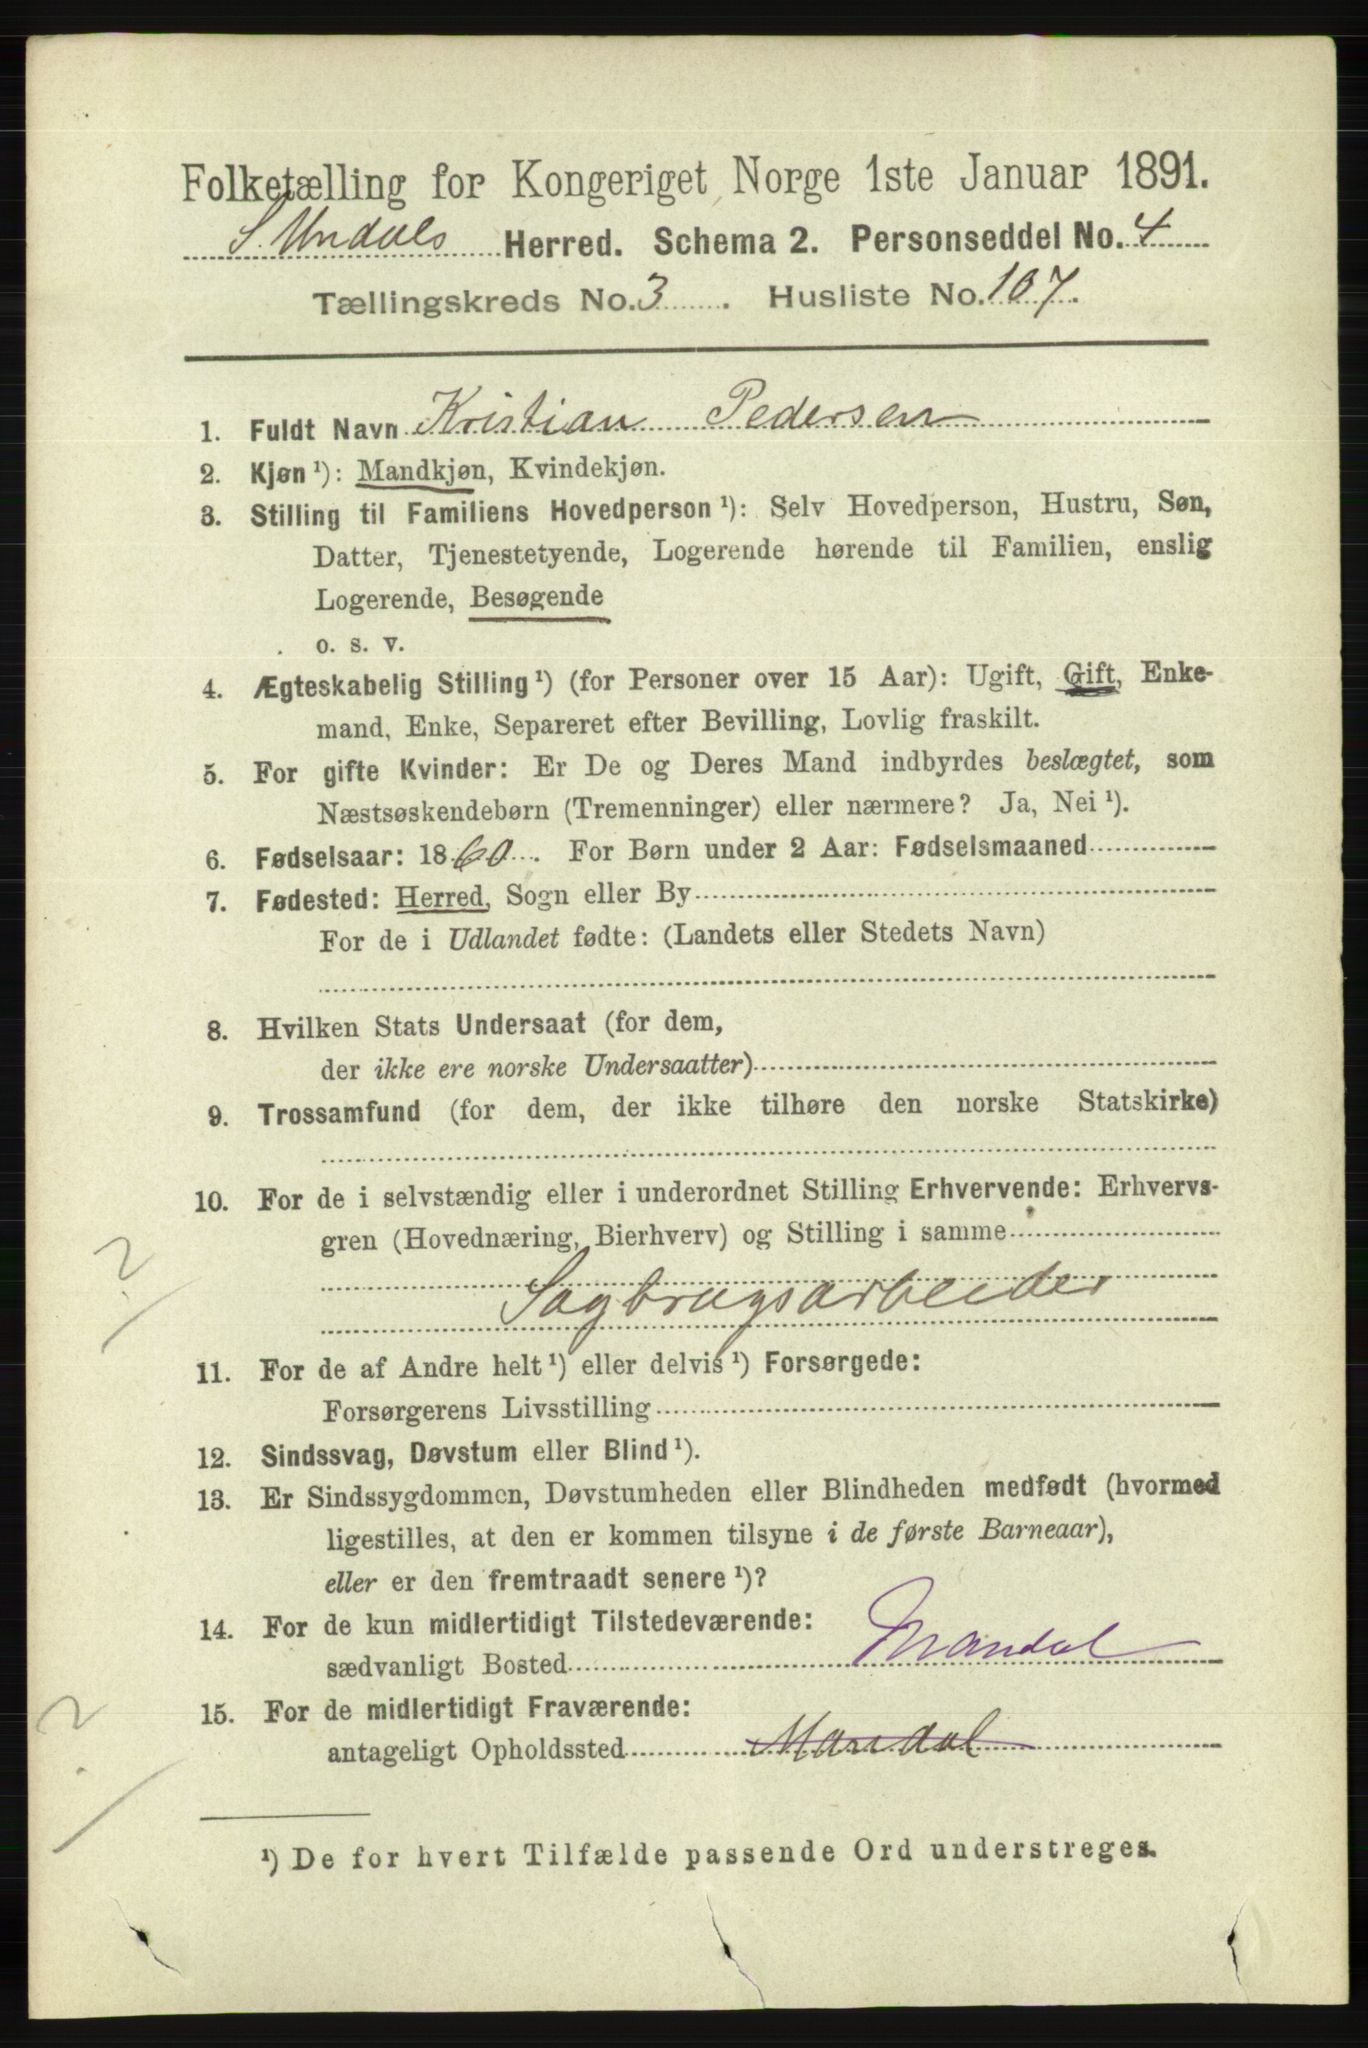 Folketælling for Kongeriget Norge 1ste Januar 1891.
S. Undals Herred. Schema 2. Personseddel No. 4
Tællingskreds No. 3. Husliste No. 107.
1. Fuldt Navn Kristian Pedersen
2. Kjøn ¹): Mandkjøn, Kvindekjøn.
3. Stilling til Familiens Hovedperson ¹): Selv Hovedperson, Hustru, Søn,
Datter, Tjenestetyende, Logerende hørende til Familien, enslig
Logerende, Besøgende
o. s. v.
4. Ægteskabelig Stilling ¹) (for Personer over 15 Aar): Ugift, Gift, Enke-
mand, Enke, Separeret efter Bevilling, Lovlig fraskilt.
5. For gifte Kvinder: Er De og Deres Mand indbyrdes beslægtet, som
Næstsøskendebørn (Tremenninger) eller nærmere? Ja, Nei ¹).
6. Fødselsaar: 1860. For Børn under 2 Aar: Fødselsmaaned
7. Fødested: Herred, Sogn eller By
For de i Udlandet fødte: (Landets eller Stedets Navn)
8. Hvilken Stats Undersaat (for dem,
der ikke ere norske Undersaatter)
9. Trossamfund (for dem, der ikke tilhøre den norske Statskirke)
10. For de i selvstændig eller i underordnet Stilling Erhvervende: Erhvervs-
gren (Hovednæring, Bierhverv) og Stilling i samme
Sagbrugsarbeider
11. For de af Andre helt ¹) eller delvis ¹) Forsørgede:
Forsørgerens Livsstilling
12. Sindssvag, Døvstum eller Blind ¹).
13. Er Sindssygdommen, Døvstumheden eller Blindheden medfødt (hvormed
ligestilles, at den er kommen tilsyne i de første Barneaar),
eller er den fremtraadt senere ¹)?
14. For de kun midlertidigt Tilstedeværende:
sædvanligt Bosted Mandal
15. For de midlertidigt Fraværende:
antageligt Opholdssted Mandal
¹) De for hvert Tilfælde passende Ord understreges.